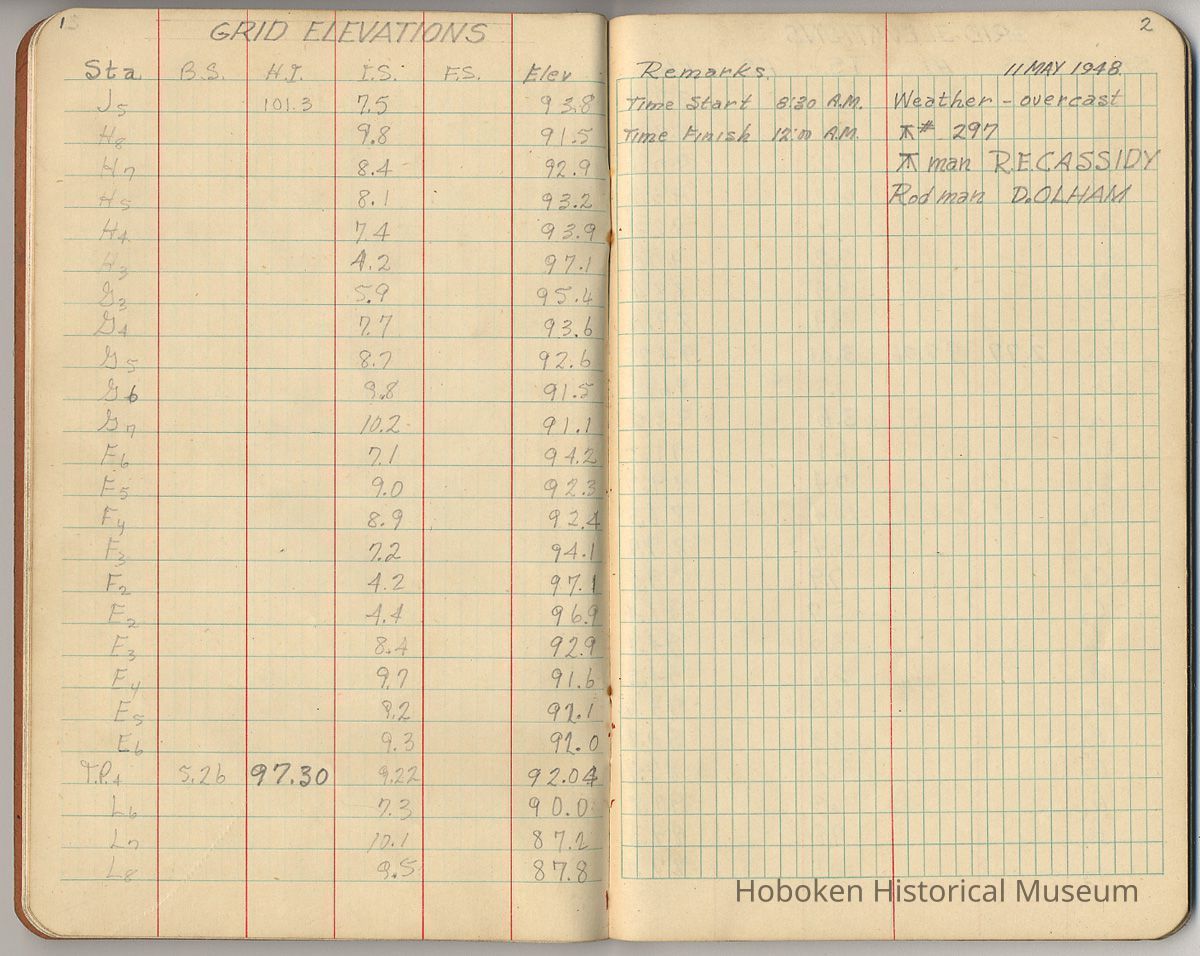 1
GRID ELEVATIONS
Sta B.S. H.I. I.S. F.S. Elev
J5 101.3 7.5 93.8
H8 9.8 91.5
H7 8.4 92.9
H5 8.1 93.2
H4 7.4 93.9
H3 4.2 97.1
G3 5.9 95.4
G4 7.7 93.6
G5 8.7 92.6
G6 9.8 91.5
G7 10.2 91.1
F6 7.1 94.2
F5 9.0 92.3
F4 8.9 92.4
F3 7.2 94.1
F2 4.2 97.1
E2 4.4 96.9
E3 8.4 92.9
E4 9.7 91.6
E5 9.2 92.1
E6 9.3 92.0
T.P.4 5.26 97.30 9.22 92.04
L6 7.3 90.0
L7 10.1 87.2
L8 9.5 87.8
2
Remarks. 11 MAY 1948
Time Start 8:30 A.M. Weather - overcast
Time Finish 12:00 A.M. # 297
man R.E.CASSIDY
Rod man D.OLHAM
Hoboken Historical Museum